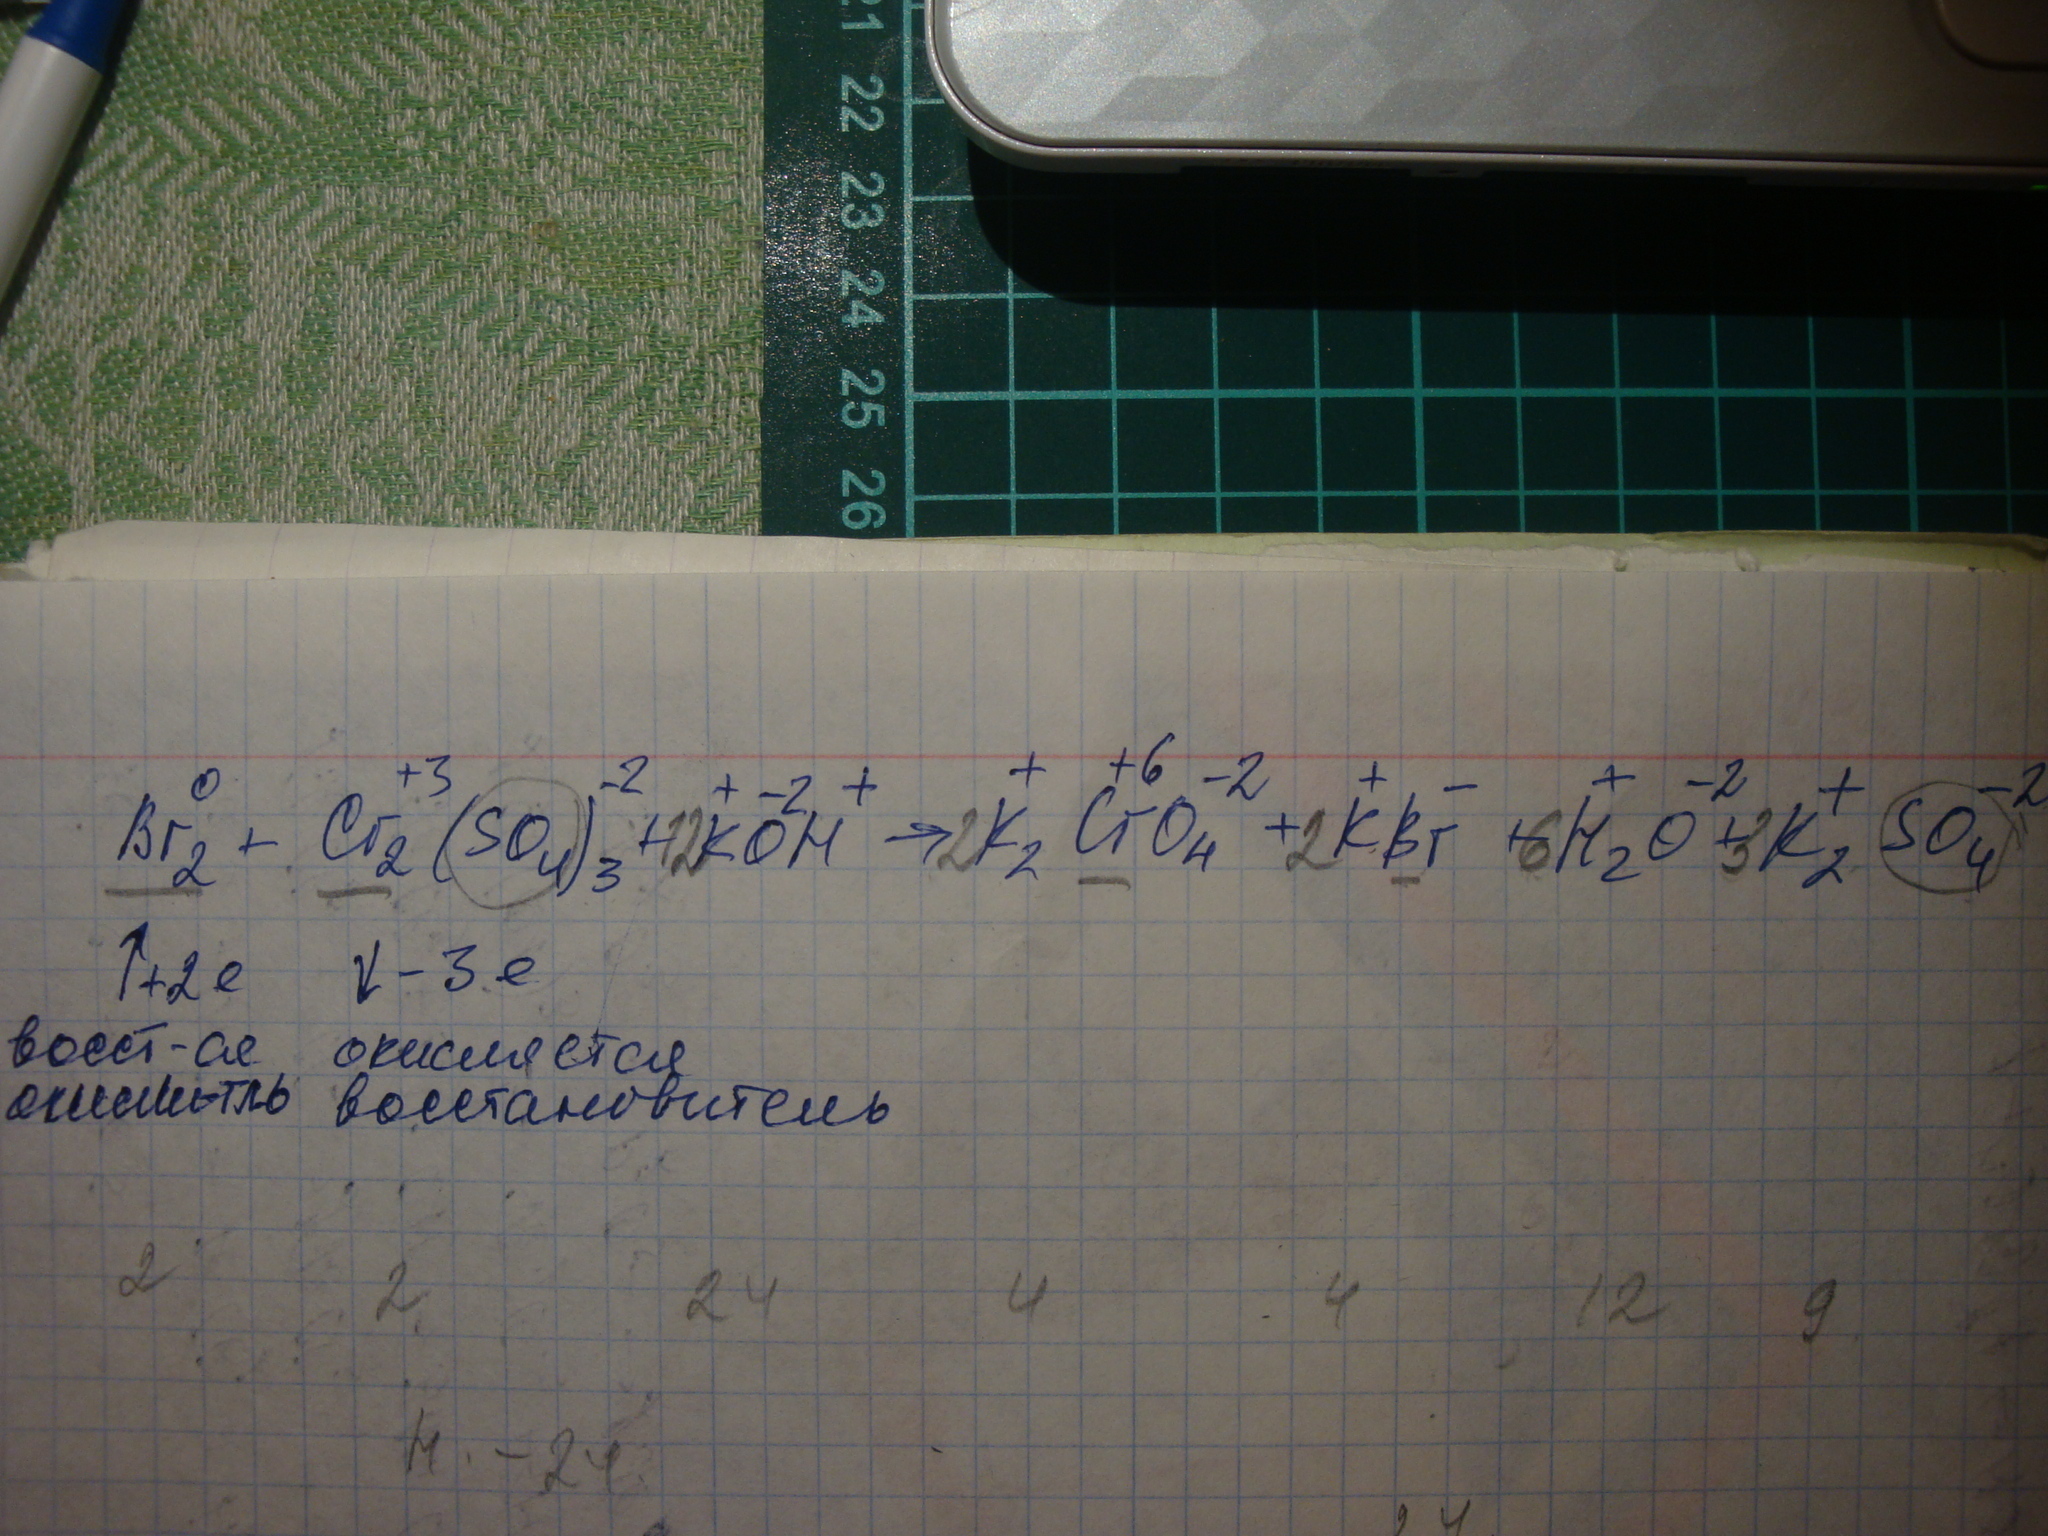 21
22
23
24
25
26
Br₂⁰ + Cr₂⁺³(SO₄)₃⁻² + 12K⁺O⁻²H⁺ → 2K₂⁺Cr⁺⁶O₄⁻² + 2K⁺Br⁻ + 6H₂⁺O⁻² + 3K₂⁺SO₄⁻²
↑+2e ↓-3e
восст-ся окисляется
окислит-ль восстановитель
2 2 24 4 4 12 9
H. - 24.
24